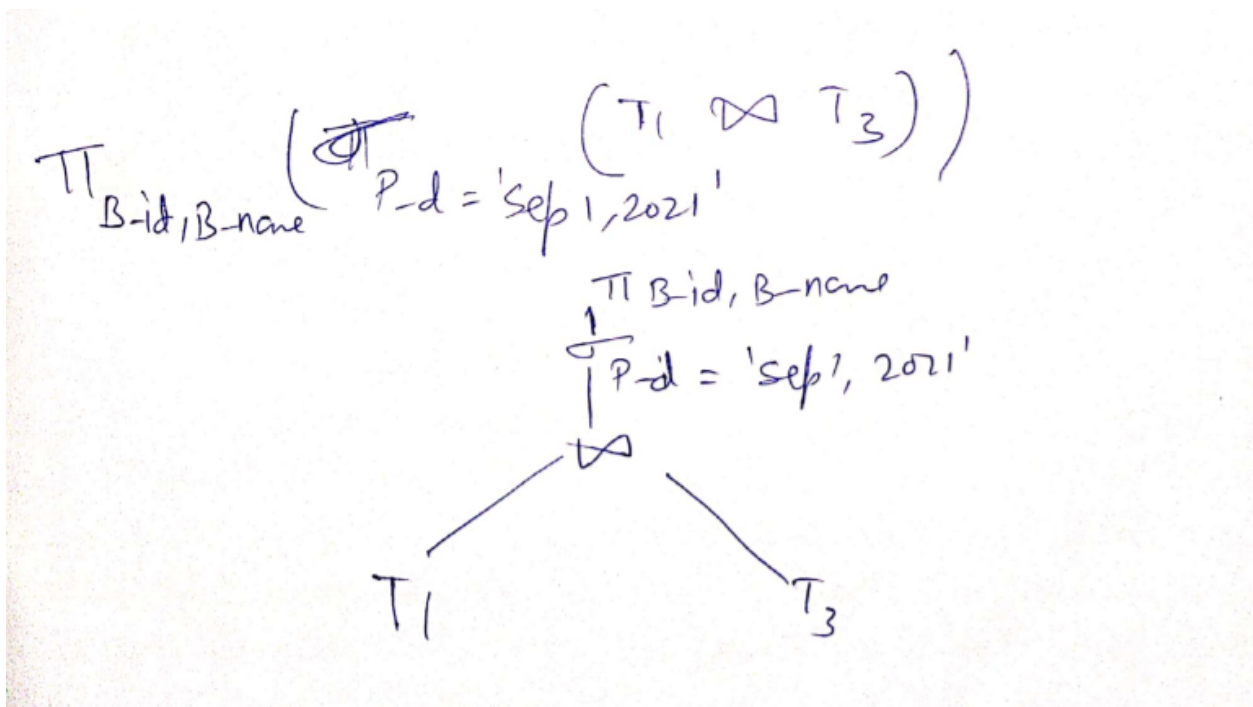 π B-id, B-name ( σ P-d = 'Sep 1, 2021' ( T1 ⋈ T3 ) )
π B-id, B-name
σ P-d = 'sep1, 2021'
⋈
T1 T3